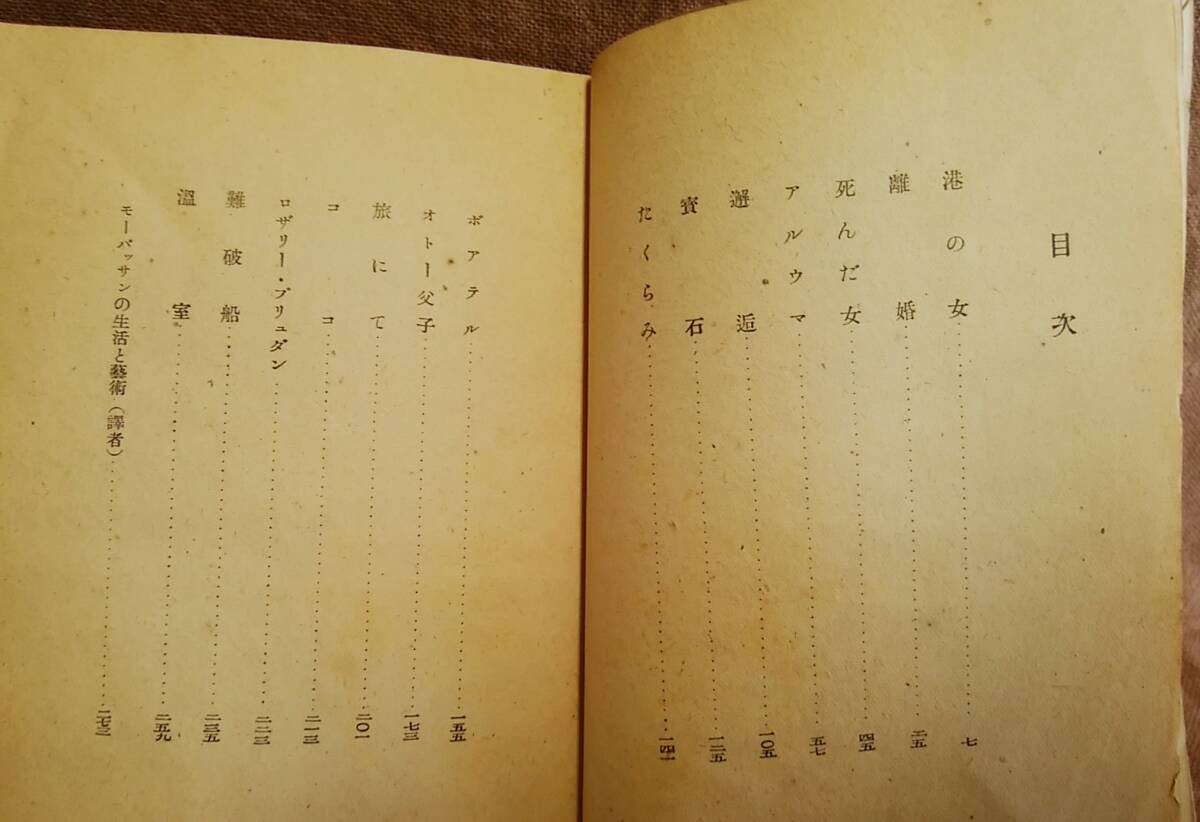 目次
港の女……七
離婚……二五
死んだ女……四五
アルウマ……五七
邂逅……一〇五
寳石……一二五
たくらみ……一四一
ボアテル……一五五
オトー父子……一七三
旅にて……二〇一
ココ……二一三
ロザリー・プリュダン……二二三
難破船……二三五
溫室……二五九
モーパッサンの生活と藝術(譯者)……二七三